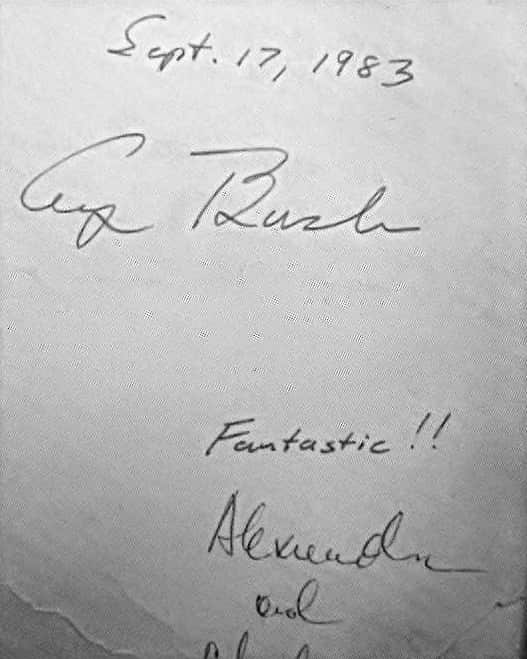 Sept. 17, 1983
Bush
Fantastic!!
Alexandra
and